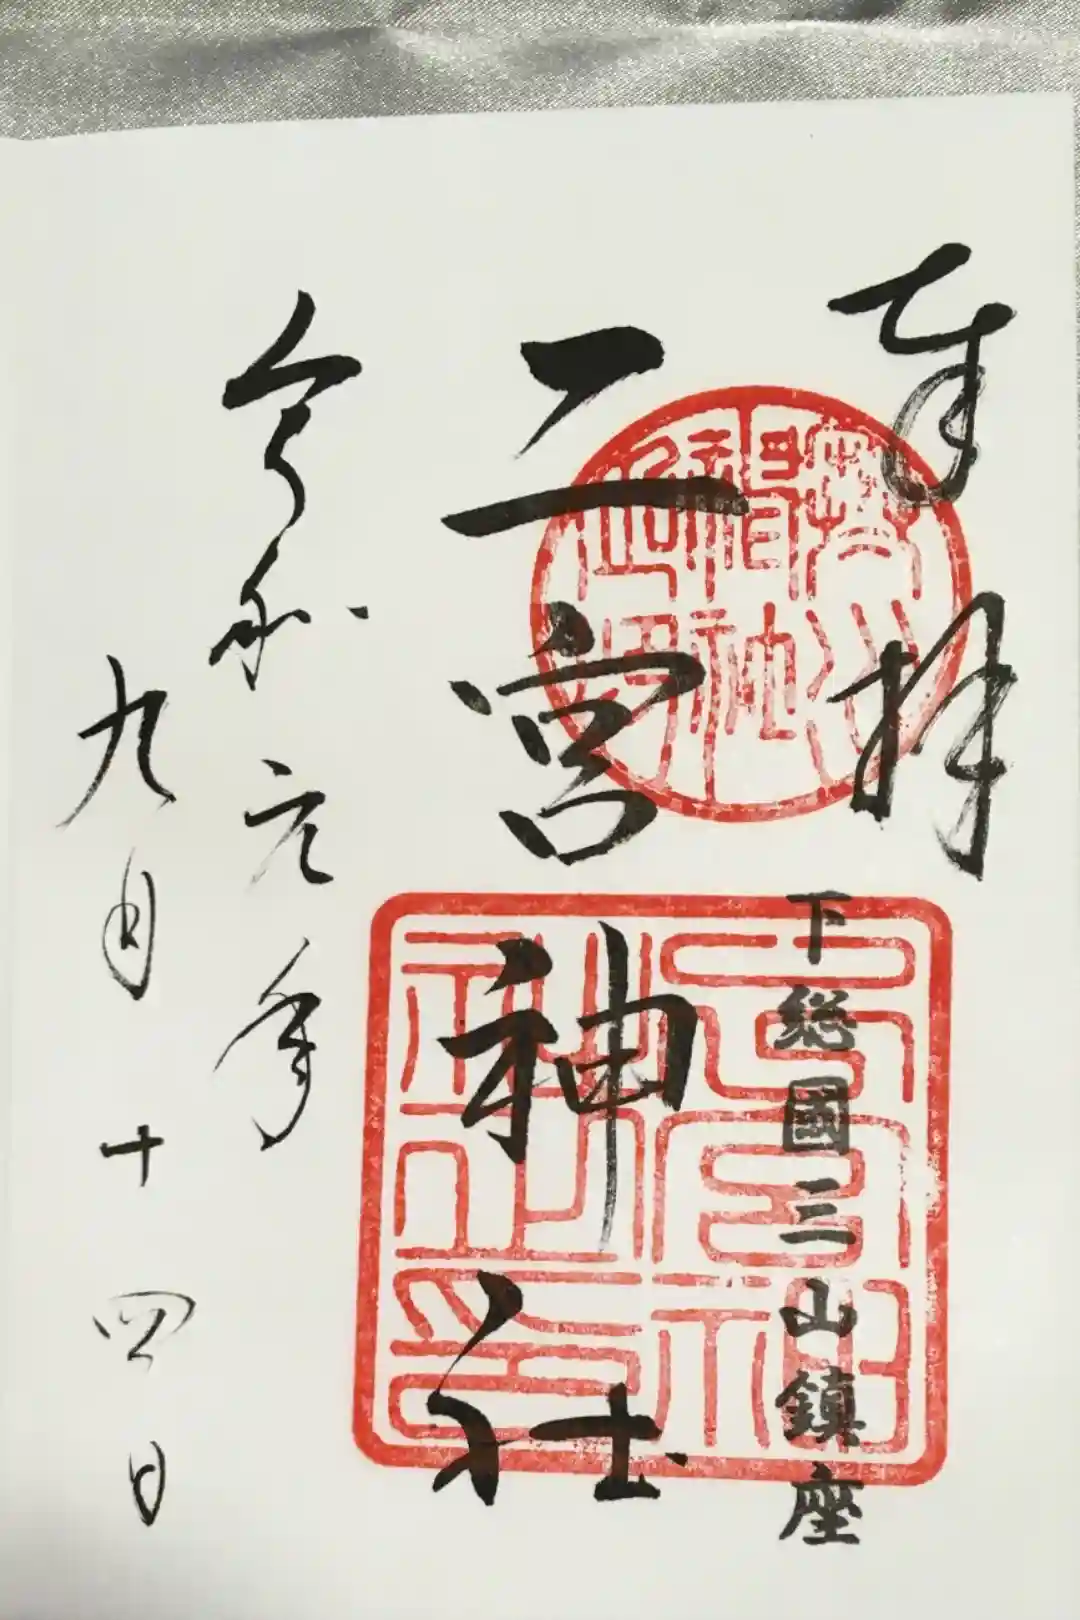 奉拝
下総國三山鎮座
二宮神社
令和元年
九月十四日